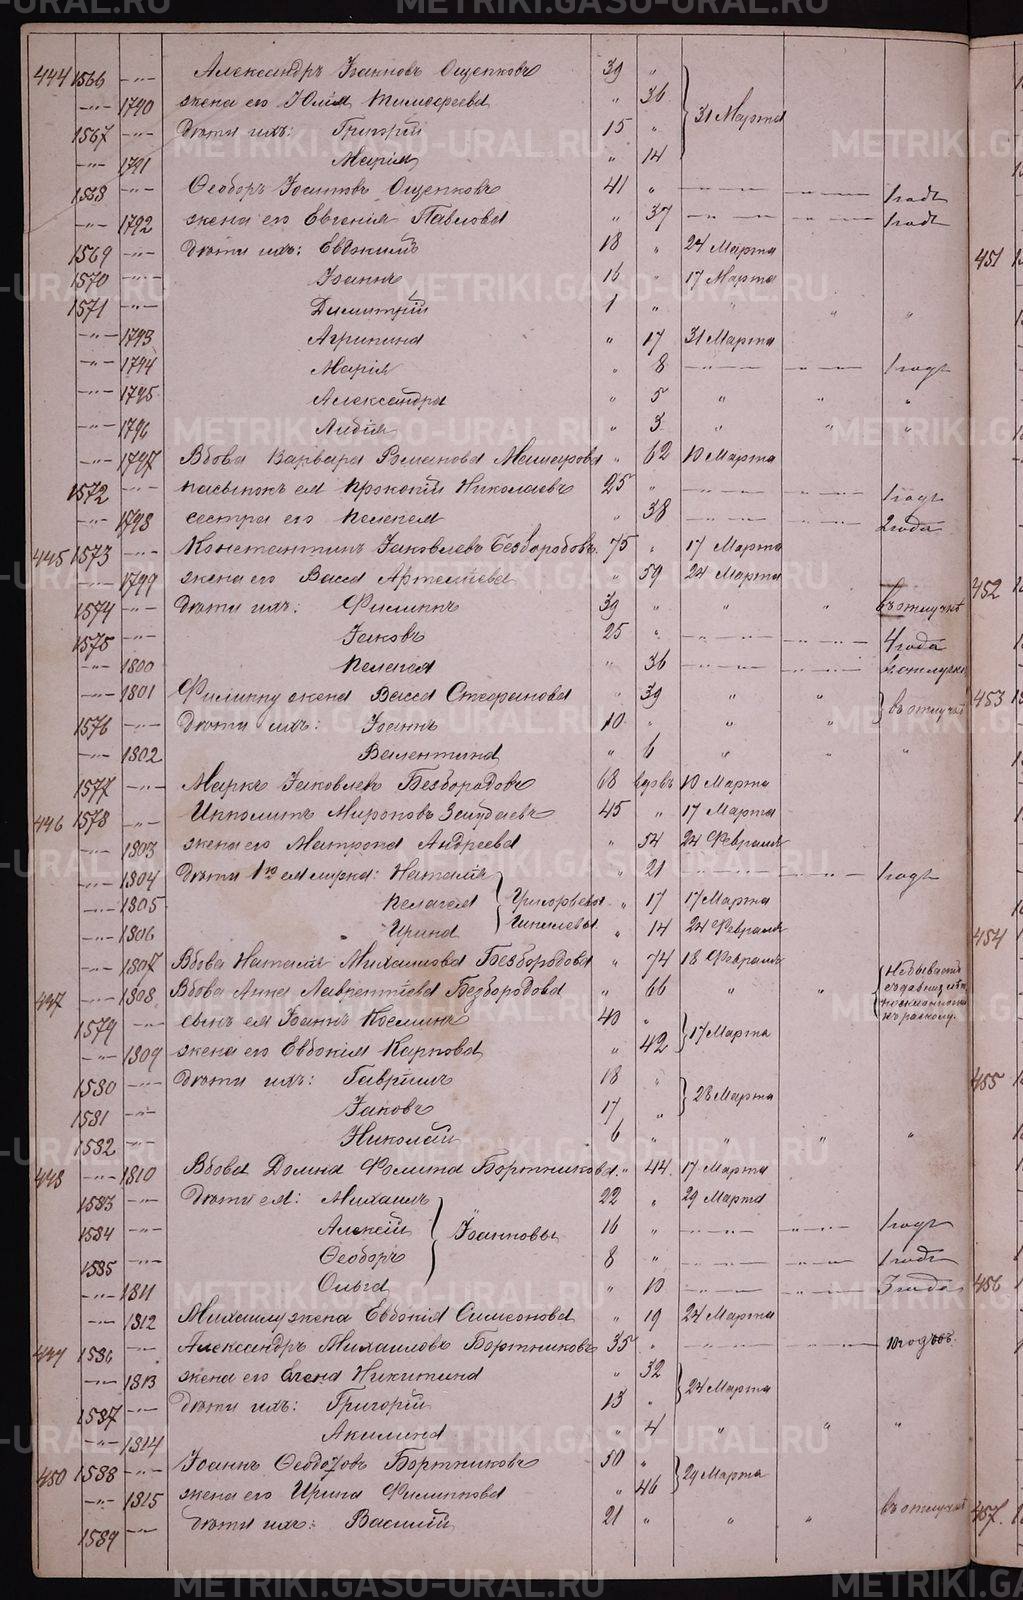 METRIKI.GASO-URAL.RU
444 1566 —"— Александръ Іоанновъ Ощепковъ 39 "
—"— 1790 жена его Юлія Тимофеева " 36 } 31 Марта
1567 —"— Дѣти ихъ: Григорій 15 "
—"— 1791 Марія " 14
1568 —"— Ѳеодоръ Іоанновъ Ощепковъ 41 " —"— —"— 1 годъ
—"— 1792 жена его Евгенія Павлова " 37 —"— —"— 1 годъ
1569 —"— Дѣти ихъ: Евдокимъ 18 " 24 Марта
1570 —"— Іоаннъ 16 " 17 Марта
1571 —"— Димитрій 1 " " " "
—"— 1793 Агрипина " 17 31 Марта
—"— 1794 Марія " 8 —"— —"— 1 годъ
—"— 1795 Александра " 5 " " "
—"— 1796 Лидія " 3 " " "
—"— 1797 Вдова Варвара Романова " 62 10 Марта
1572 —"— пасынокъ ея Прокопій Николаевъ 25 " —"— —"— 1 годъ
—"— 1798 сестра его Пелагея " 38 —"— —"— 2 года
445 1573 —"— Константинъ Іаковлевъ Безбородовъ 75 " 17 Марта
—"— 1799 жена его Васса Артемьева " 59 24 Марта
1574 —"— Дѣти ихъ: Филиппъ 39 " " " въ отлучкѣ
1575 —"— Іаковъ 25 " —"— —"— 4 года
—"— 1800 Пелагея " 36 —"— —"— въ отлучкѣ
—"— 1801 Филиппу жена Васса Стефанова " 39 " " } въ отлучкѣ
1576 —"— Дѣти ихъ: Іоаннъ 10 " " "
—"— 1802 Валентина " 6 " " "
1577 —"— Маркъ Іаковлевъ Безбородовъ 68 вдовъ 10 Марта
446 1578 —"— Ипполитъ Мироновъ 45 " 17 Марта
—"— 1803 жена его Матрона Андреева " 54 24 Февраля
—"— 1804 Дѣти 1го ея мужа: Наталія " 21 —"— —"— 1 годъ
—"— 1805 Пелагея } Григорьевы " 17 17 Марта
—"— 1806 Ирина " 14 24 Февраля
—"— 1807 Вдова Наталія Михаилова Безбородова " 74 18 Февраля
447 —"— 1808 Вдова Анна Лаврентіева Безбородова " 66 " " { Небываетъ
1579 —"— сынъ ея Іоаннъ Косминъ 40 " } 17 Марта
—"— 1809 жена его Евдокія Карпова " 42
1580 —"— Дѣти ихъ: Гавріилъ 18 " } 28 Марта
1581 —"— Іаковъ 17 "
1582 —"— Николай 6 " " " "
448 —"— 1810 Вдова Домна Фомина Бортникова " 44 17 Марта
1583 —"— Дѣти ея: Михаилъ 22 " 29 Марта
1584 —"— Алексій } Іоанновы 16 " —"— —"— 1 годъ
1585 —"— Ѳеодоръ 8 " —"— —"— 1 годъ
—"— 1811 Ольга " 10 —"— —"— 3 года
—"— 1812 Михаилу жена Евдокія Симеонова " 19 24 Марта
449 1586 —"— Александръ Михаиловъ Бортниковъ 35 " —"— —"— 10 годовъ.
—"— 1813 жена его Елена Никитина " 32 } 24 Марта
1587 —"— Дѣти ихъ: Григорій 13 "
—"— 1814 Акилина " 4 " " "
450 1588 —"— Іоаннъ Ѳеодотовъ Бортниковъ 50 " } 29 Марта
—"— 1815 жена его Ирина Филиппова " 46
1589 —"— Дѣти ихъ: Василій 21 " " " въ отлучкѣ
451
452
453
454
455
456
457